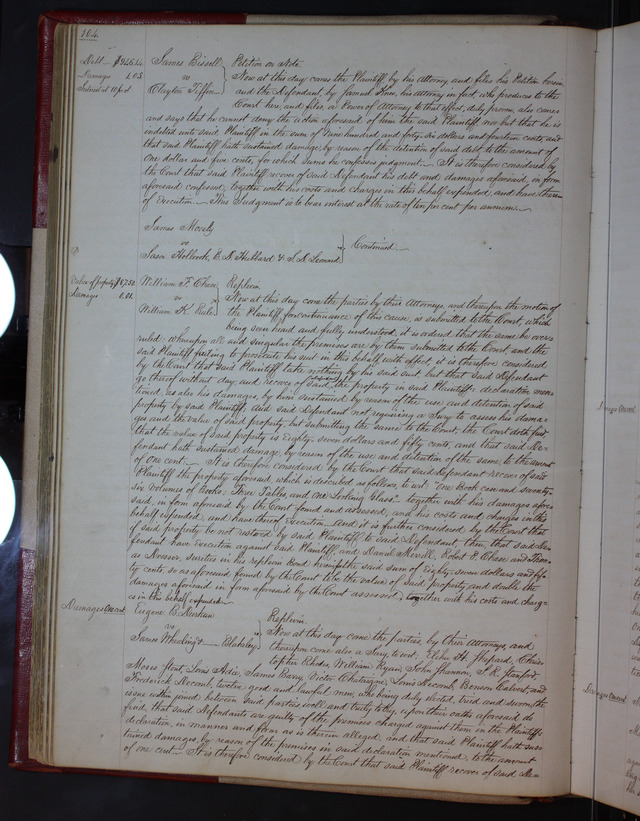 164
Debt $246.64
Damages 1.05
Interest at 10 pr ct
James Bissell
vs
Clayton Tiffin
Petition on Note
Now at this day comes the Plaintiff by his Attorney and files his Petition herein
and the Defendant by Samuel his Attorney in fact, who produces to the
Court here, and files, a Power of Attorney to that effect, duly proven, also comes
and says that he cannot deny the action aforesaid of him the said Plaintiff nor but that he is
indebted unto said Plaintiff in the sum of Two hundred and forty six dollars and cents, and
that said Plaintiff hath sustained damage by reason of the detention of said debt to the amount of
One dollar and five cents, for which sums he confesses judgment. It is therefore considered by
the Court that said Plaintiff recover of said Defendant his debt and damages aforesaid, in form
aforesaid confessed, together with his costs and charges in this behalf expended, and have there-
of Execution. This Judgment is to bear interest at the rate of ten per cent per annum.
James Morely
vs
Hollock, E. D. Hubbard & S. D. Leonard
Continued
Value of property $87.50
Damages 0.01
William F. Chase
vs
William K.
Replevin
Now at this day come the parties by their Attorneys, and thereupon the motion of
the Plaintiff for continuance of this cause, is submitted to the Court, which
being seen heard and fully understood, it is ordered that the same be over-
ruled: whereupon all and singular the premises are by them submitted to the Court, and the
said Plaintiff failing to prosecute his suit in this behalf with effect, it is therefore considered
by the Court that said Plaintiff take nothing by his said suit but that said Defendant
go thereof without day and recover of said the property in said Plaintiff's declaration men-
tioned, as also his damages, by him sustained by reason of the use and detention of said
property by said Plaintiff, and said Defendant not requiring a Jury to assess his dama-
ges and the value of said property but submitting the same to the Court, the Court doth find
that the value of said property is Eighty seven dollars and fifty cents, and that said De-
fendant hath sustained damage by reason of the use and detention of the same, to the amount
of one cent. It is therefore considered by the Court that said Defendant recover of said
Plaintiff the property aforesaid which is described as follows, to wit "One Book case and seventy-
six volumes of books, Three Tables, and one Looking Glass" together with his damages afore-
said, in form aforesaid by the Court found and assessed, and his costs and charges in this
behalf expended, and have thereof Execution. And it is further considered by the Court that
if said property be not restored by said Plaintiff to said Defendant, then that said De-
fendant have execution against said Plaintiff, and Daniel Merrill, Robert P. Chase and Thom-
as Dresser, sureties in his replevin Bond herein, for the said sum of Eighty seven dollars and fif-
ty cents, so as aforesaid found by the Court to be the value of said property, and double the
damages aforesaid in form aforesaid by the Court assessed, together with his costs and charg-
es in this behalf expended.
Damages One cent
Eugene B.
vs
James Wheeling & Blakeley
Replevin
Now at this day come the parties by their Attorneys, and
thereupon come also a Jury to wit, John H. Shepard, Chris-
topher Rhodes, William Ryan, John Shannon, J. R. Stanford,
Moses Flent, Louis Adie, James Barry, Victor Chataigne, Louis Macomb, Benson Calvert, and
Frederick Decomb, twelve good and lawful men, who being duly elected, tried and sworn the
issue within joined between said parties well and truly to try, upon their oaths aforesaid do
find, that said Defendants are guilty of the premises charged against them in the Plaintiff's
declaration, in manner and form as is therein alleged, and that said Plaintiff hath sus-
tained damages, by reason of the premises in said declaration mentioned, to the amount
of one cent. It is therefore considered by the Court that said Plaintiff recover of said De-
Damages One cent
Damages One cent